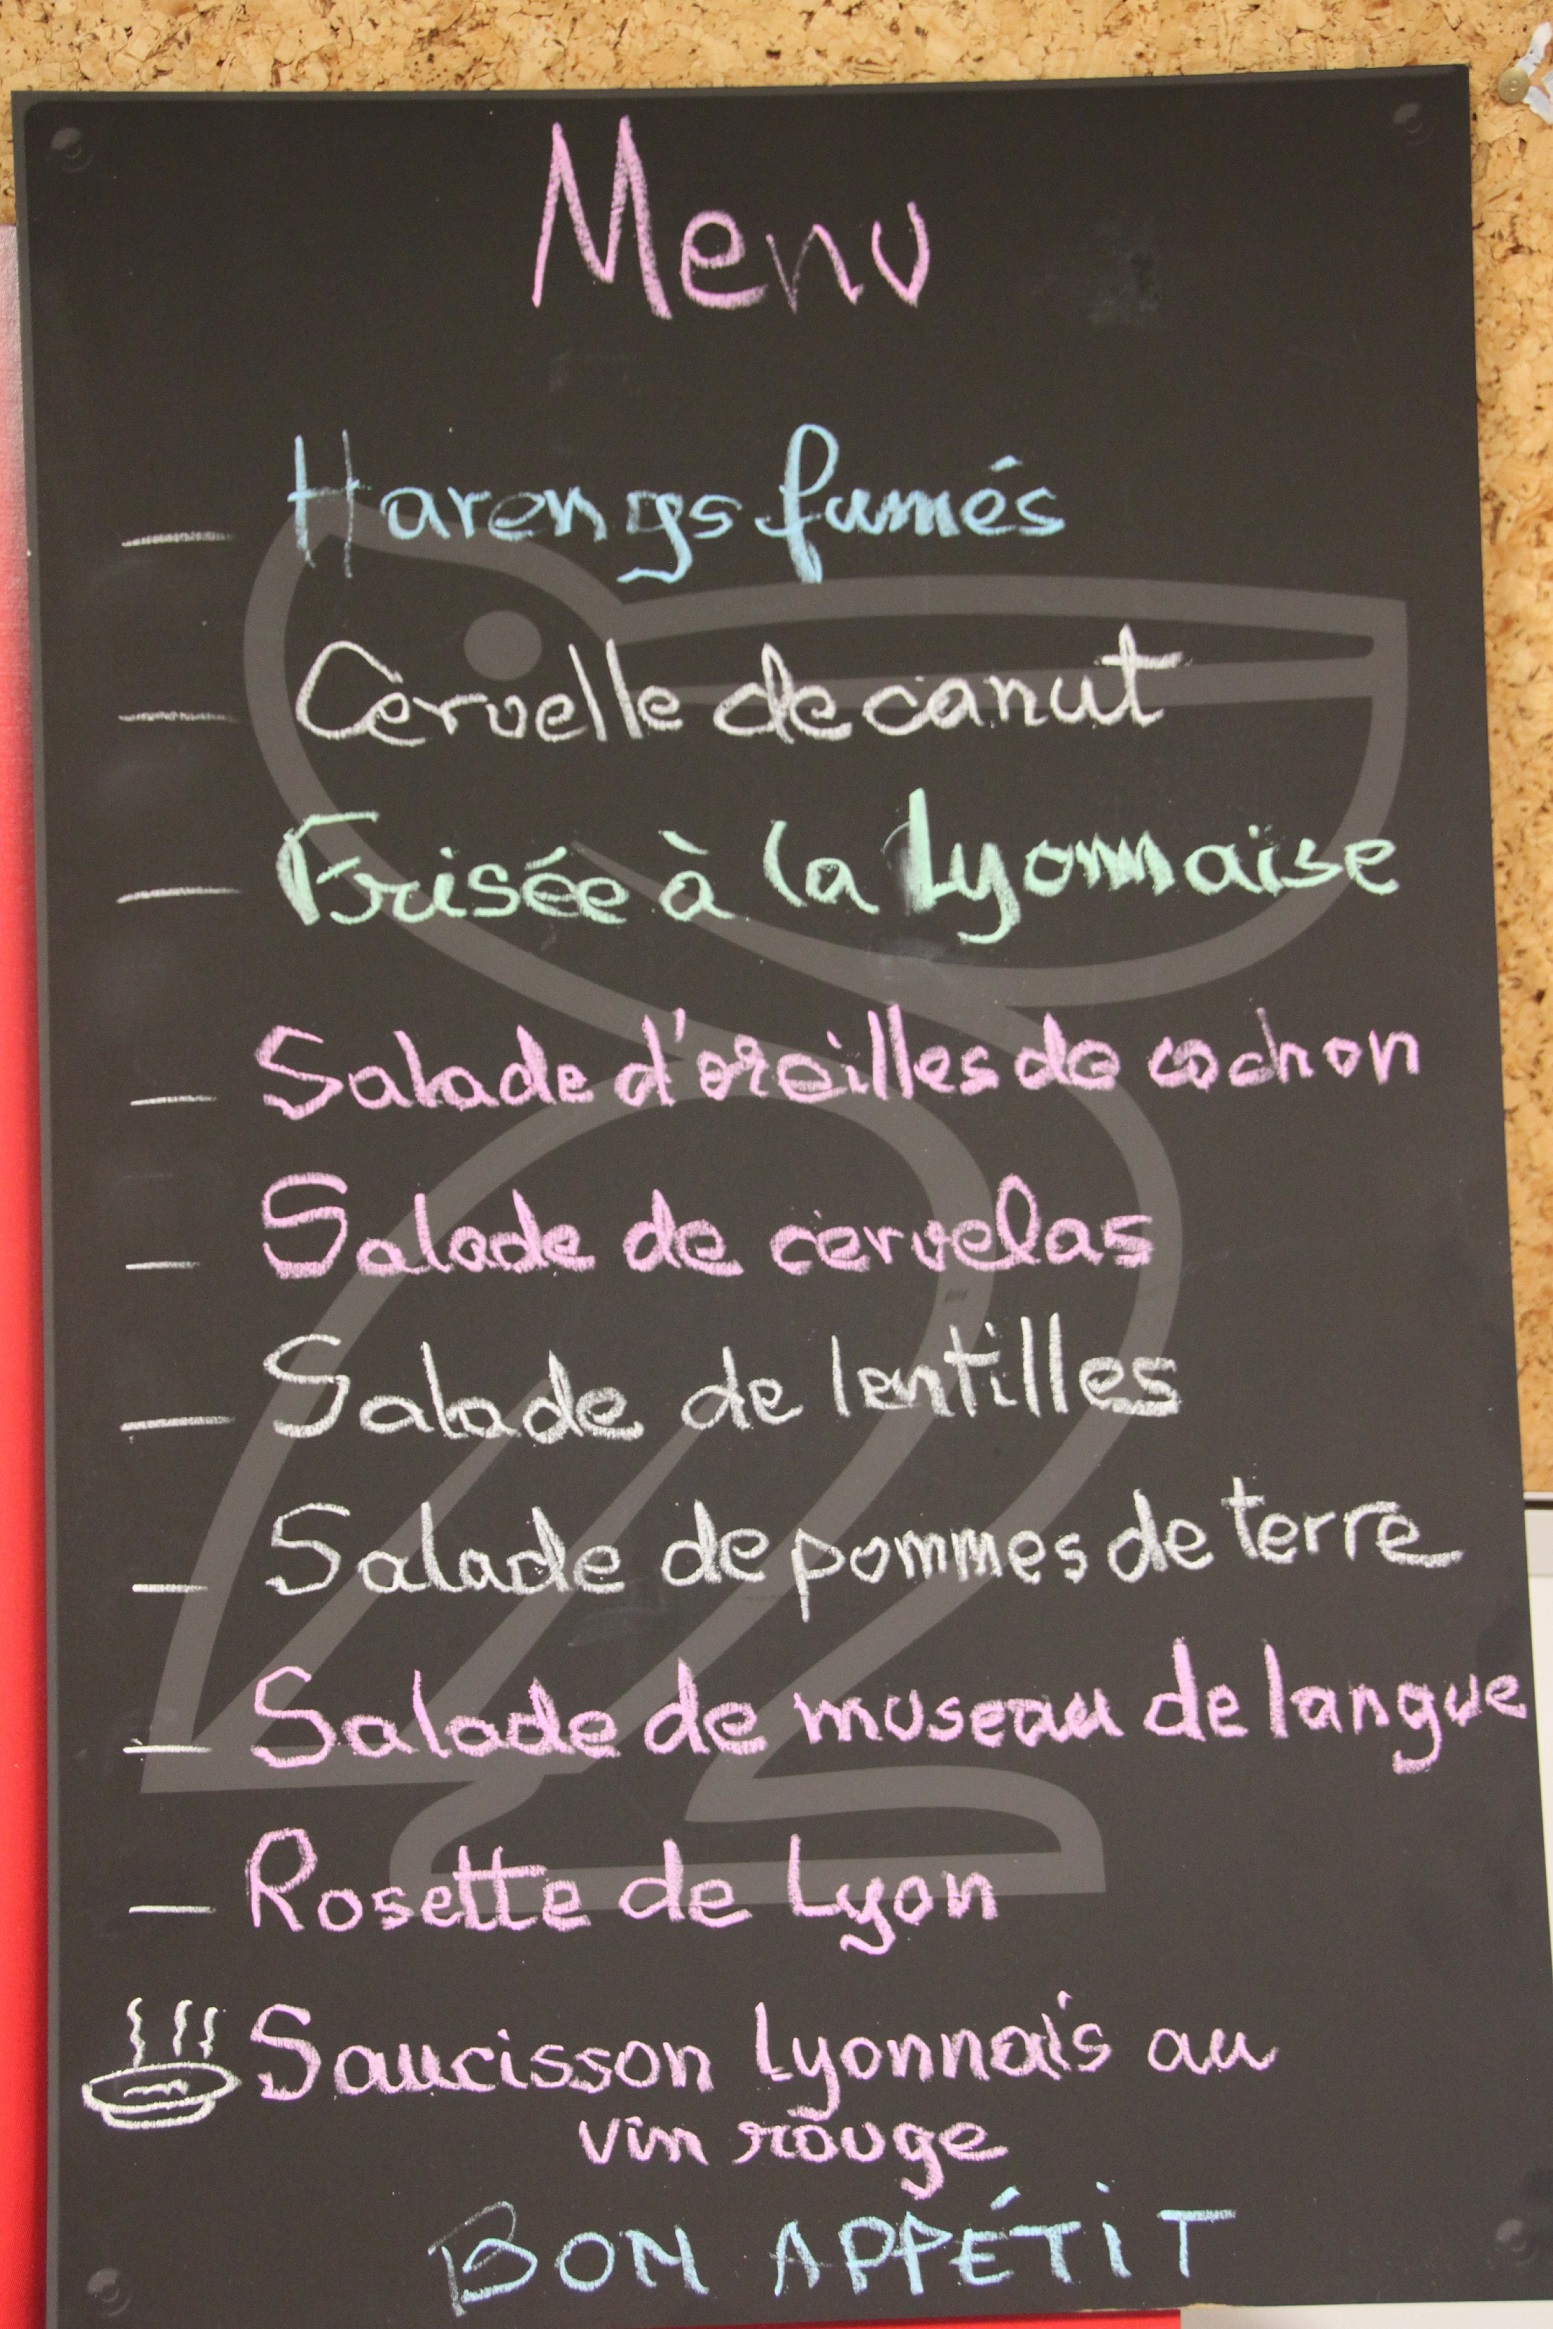 Menu
— Harengs fumés
— Cervelle de canut
— Frisée à la Lyonnaise
— Salade d'oreilles de cochon
— Salade de cervelas
— Salade de lentilles
— Salade de pommes de terre
— Salade de museau de langue
— Rosette de Lyon
Saucisson Lyonnais au
vin rouge
BON APPÉTiT